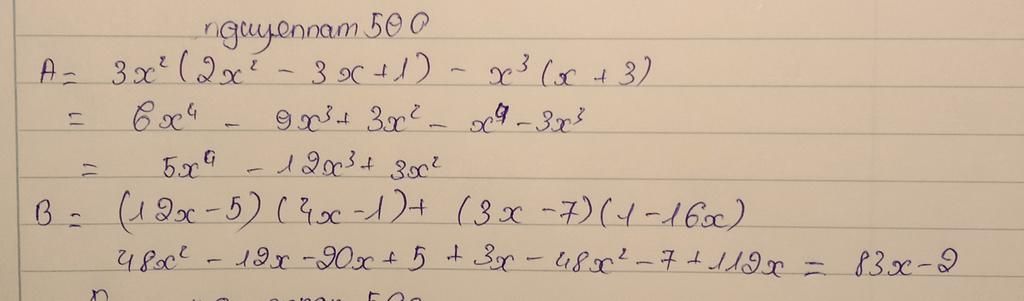 nguyennam 500
A = 3x² (2x² - 3x + 1) - x³ (x + 3)
= 6x⁴ - 9x³ + 3x² - x⁴ - 3x³
= 5x⁴ - 12x³ + 3x²
B = (12x - 5) (4x - 1) + (3x - 7) (1 - 16x)
48x² - 12x - 20x + 5 + 3x - 48x² - 7 + 112x = 83x - 2